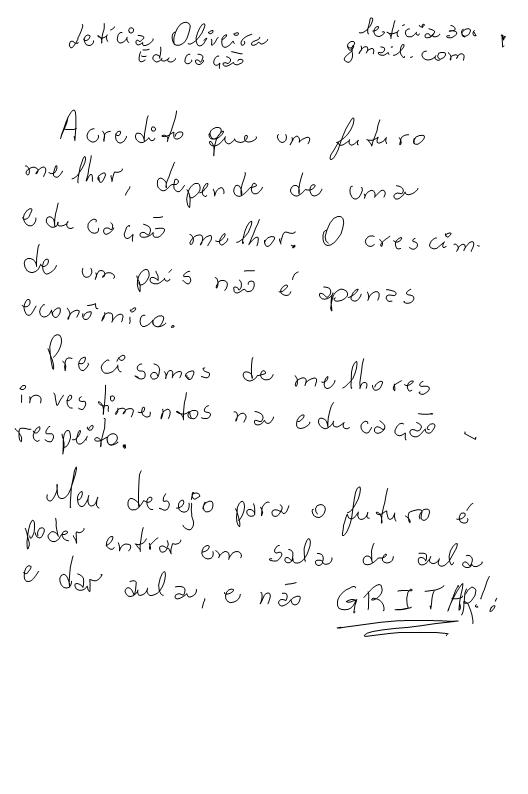 Letícia Oliveira
Educação
letícia30
gmail.com
Acredito que um futuro
melhor, depende de uma
educação melhor. O crescim.
de um país não é apenas
econômico.
Precisamos de melhores
investimentos na educação
respeito.
Meu desejo para o futuro é
poder entrar em sala de aula
e dar aula, e não GRITAR!